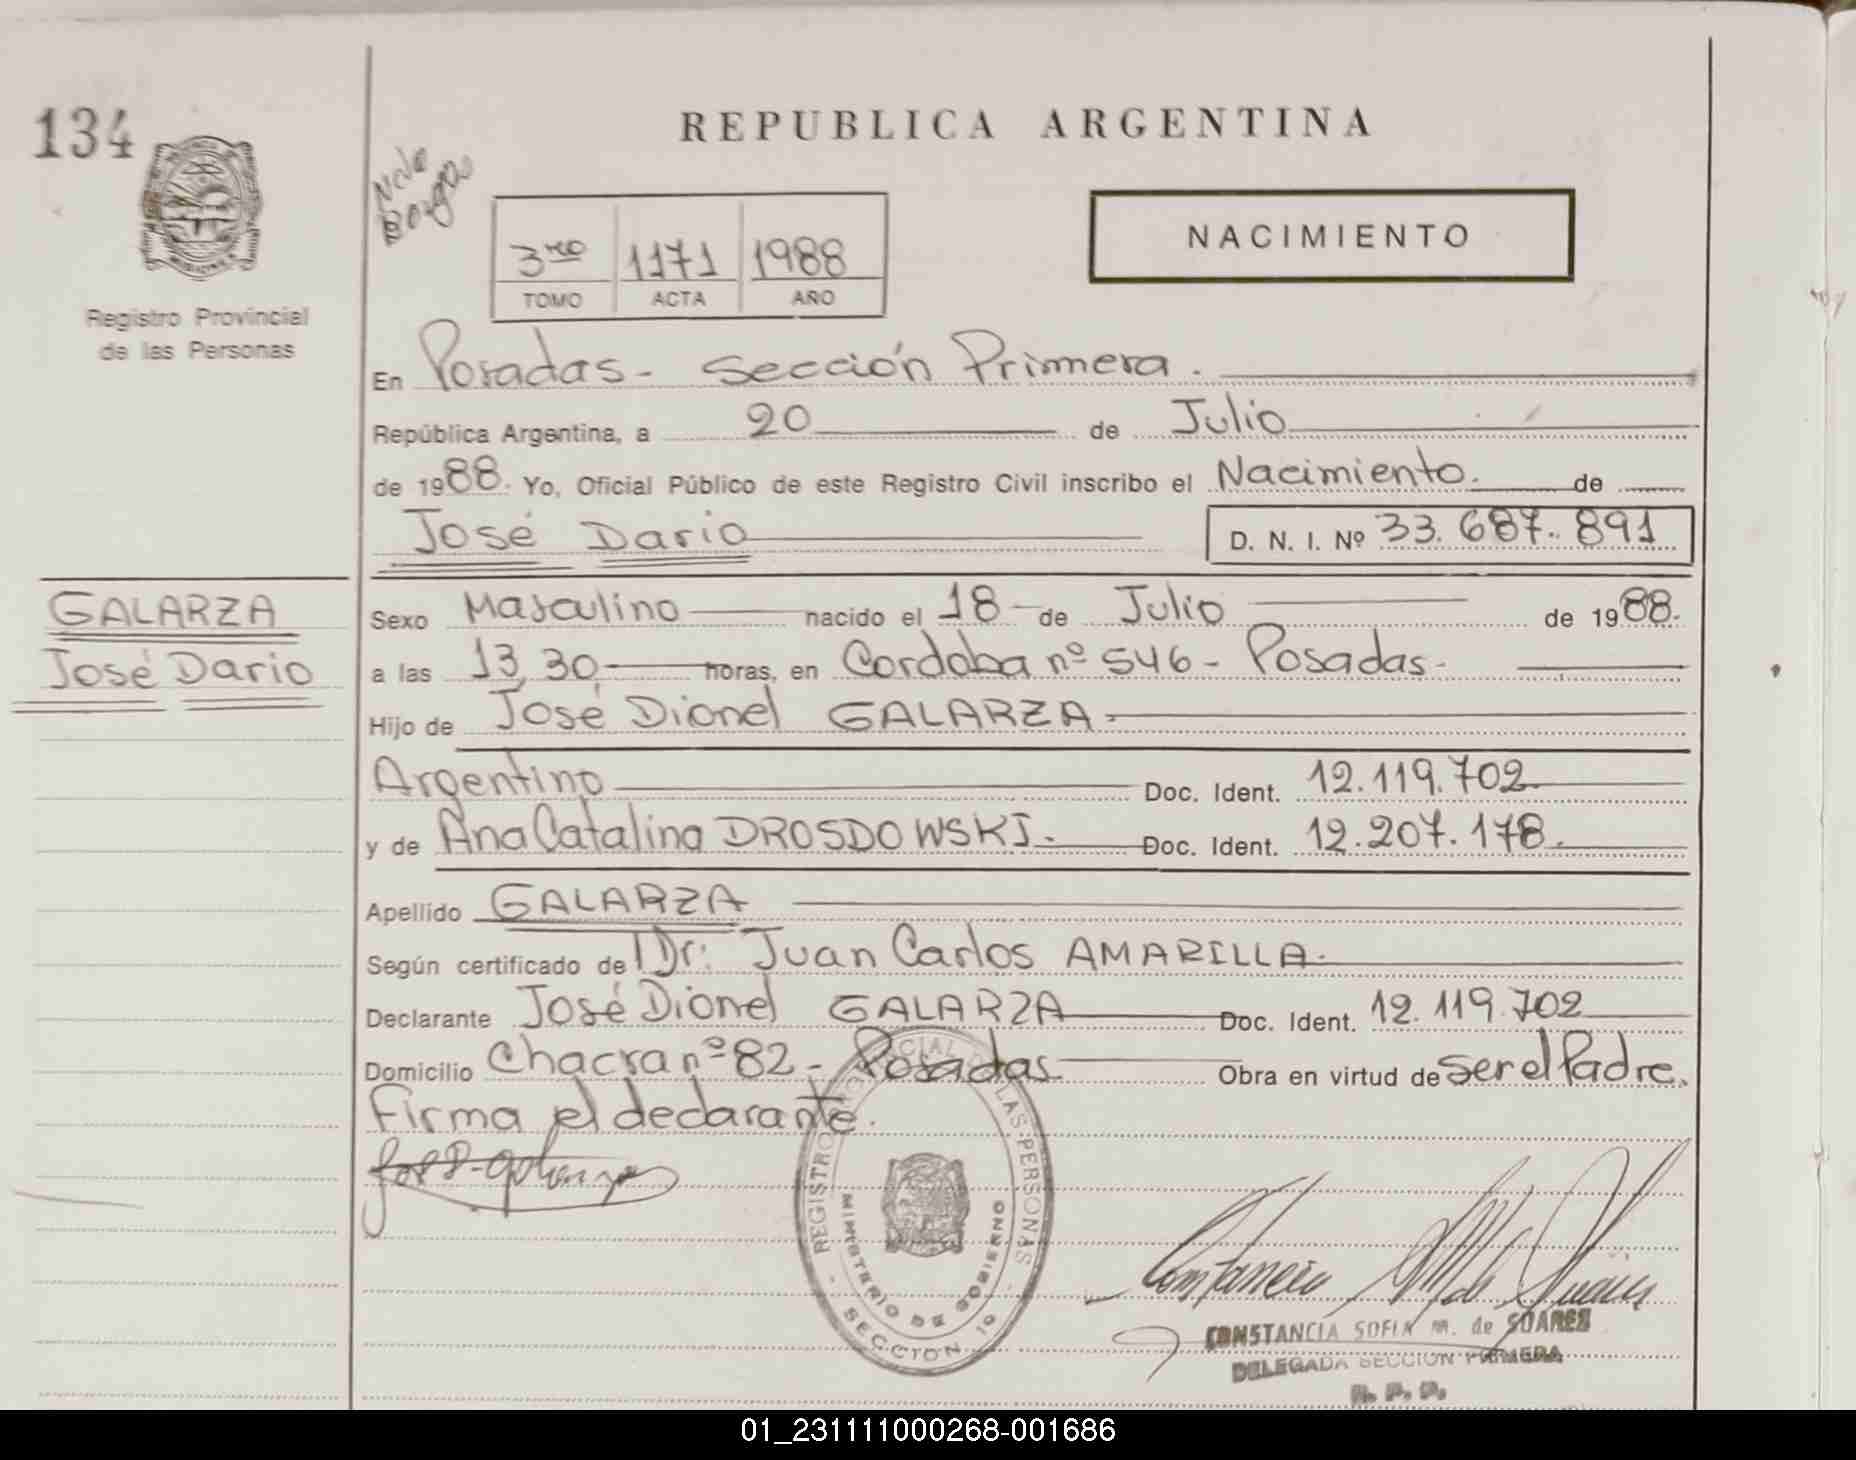 134
REPUBLICA ARGENTINA
Registro Provincial
de las Personas
3ro 1171 1988
TOMO ACTA AÑO
NACIMIENTO
En Posadas - Sección Primera.
República Argentina, a 20 de Julio
de 1988. Yo, Oficial Público de este Registro Civil inscribo el Nacimiento. de
José Dario D. N. I. Nº 33.687.891
GALARZA
José Dario
Sexo Masculino nacido el 18 de Julio de 1988.
a las 13,30 horas, en Cordoba nº 546 - Posadas -
Hijo de José Dionel GALARZA.
Argentino Doc. Ident. 12.119.702
y de Ana Catalina DROSDOWSKI. Doc. Ident. 12.207.178.
Apellido GALARZA
Según certificado de Dr: Juan Carlos AMARILLA.
Declarante José Dionel GALARZA Doc. Ident. 12.119.702
Domicilio Chacra nº 82 - Posadas Obra en virtud de ser el Padre.
Firma el declarante.
REGISTRO PROVINCIAL DE LAS PERSONAS
MINISTERIO DE GOBIERNO
SECCION 1º
CONSTANCIA SOFIA M. de SOARES
DELEGADA SECCION PRIMERA
R. P. P.
01_231111000268-001686